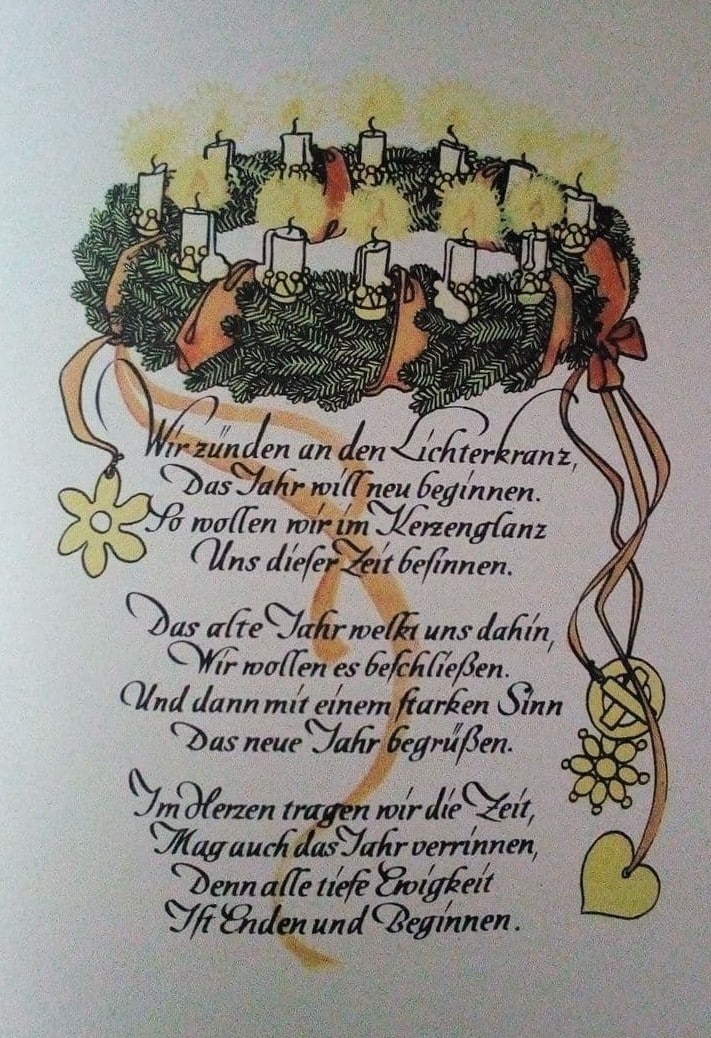 Wir zünden an den Lichterkranz,
Das Jahr will neu beginnen.
So wollen wir im Kerzenglanz
Uns dieſer Zeit beſinnen.
Das alte Jahr welkt uns dahin,
Wir wollen es beſchließen.
Und dann mit einem ſtarken Sinn
Das neue Jahr begrüßen.
Im Herzen tragen wir die Zeit,
Mag auch das Jahr verrinnen,
Denn alle tiefe Ewigkeit
Iſt Enden und Beginnen.